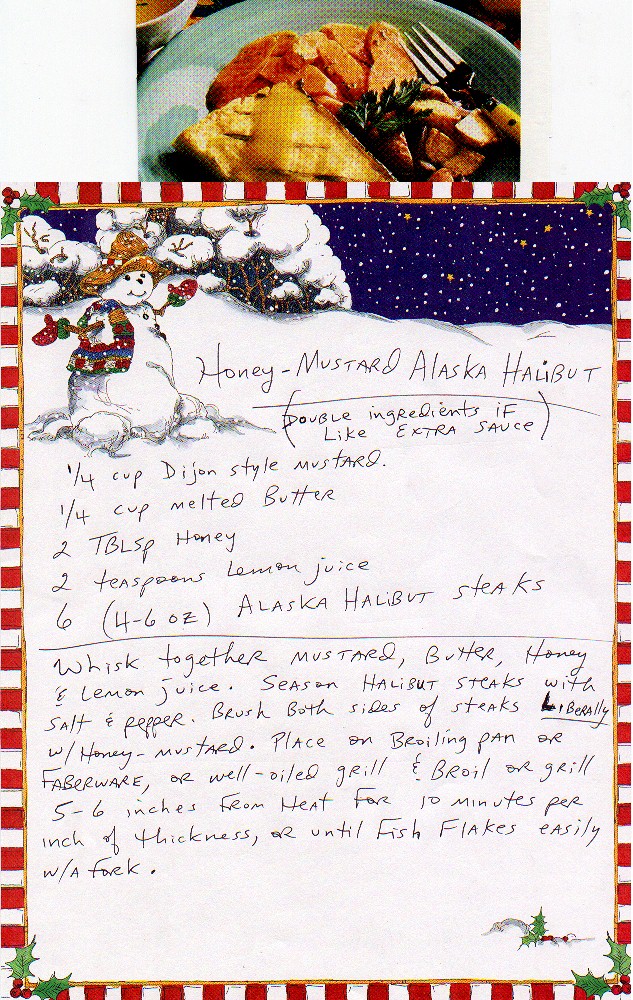 Honey-Mustard Alaska Halibut
(Double ingredients if
Like Extra Sauce)
1/4 cup Dijon style mustard.
1/4 cup melted Butter
2 TBLSp Honey
2 teaspoons Lemon juice
6 (4-6 oz) Alaska Halibut steaks
Whisk together mustard, Butter, Honey
& Lemon juice. Season Halibut steaks with
salt & pepper. Brush Both sides of steaks Liberally
w/Honey-mustard. Place on Broiling pan or
Faberware, or well-oiled grill & Broil or grill
5-6 inches from Heat for 10 minutes per
inch of thickness, or until Fish Flakes easily
w/a fork.